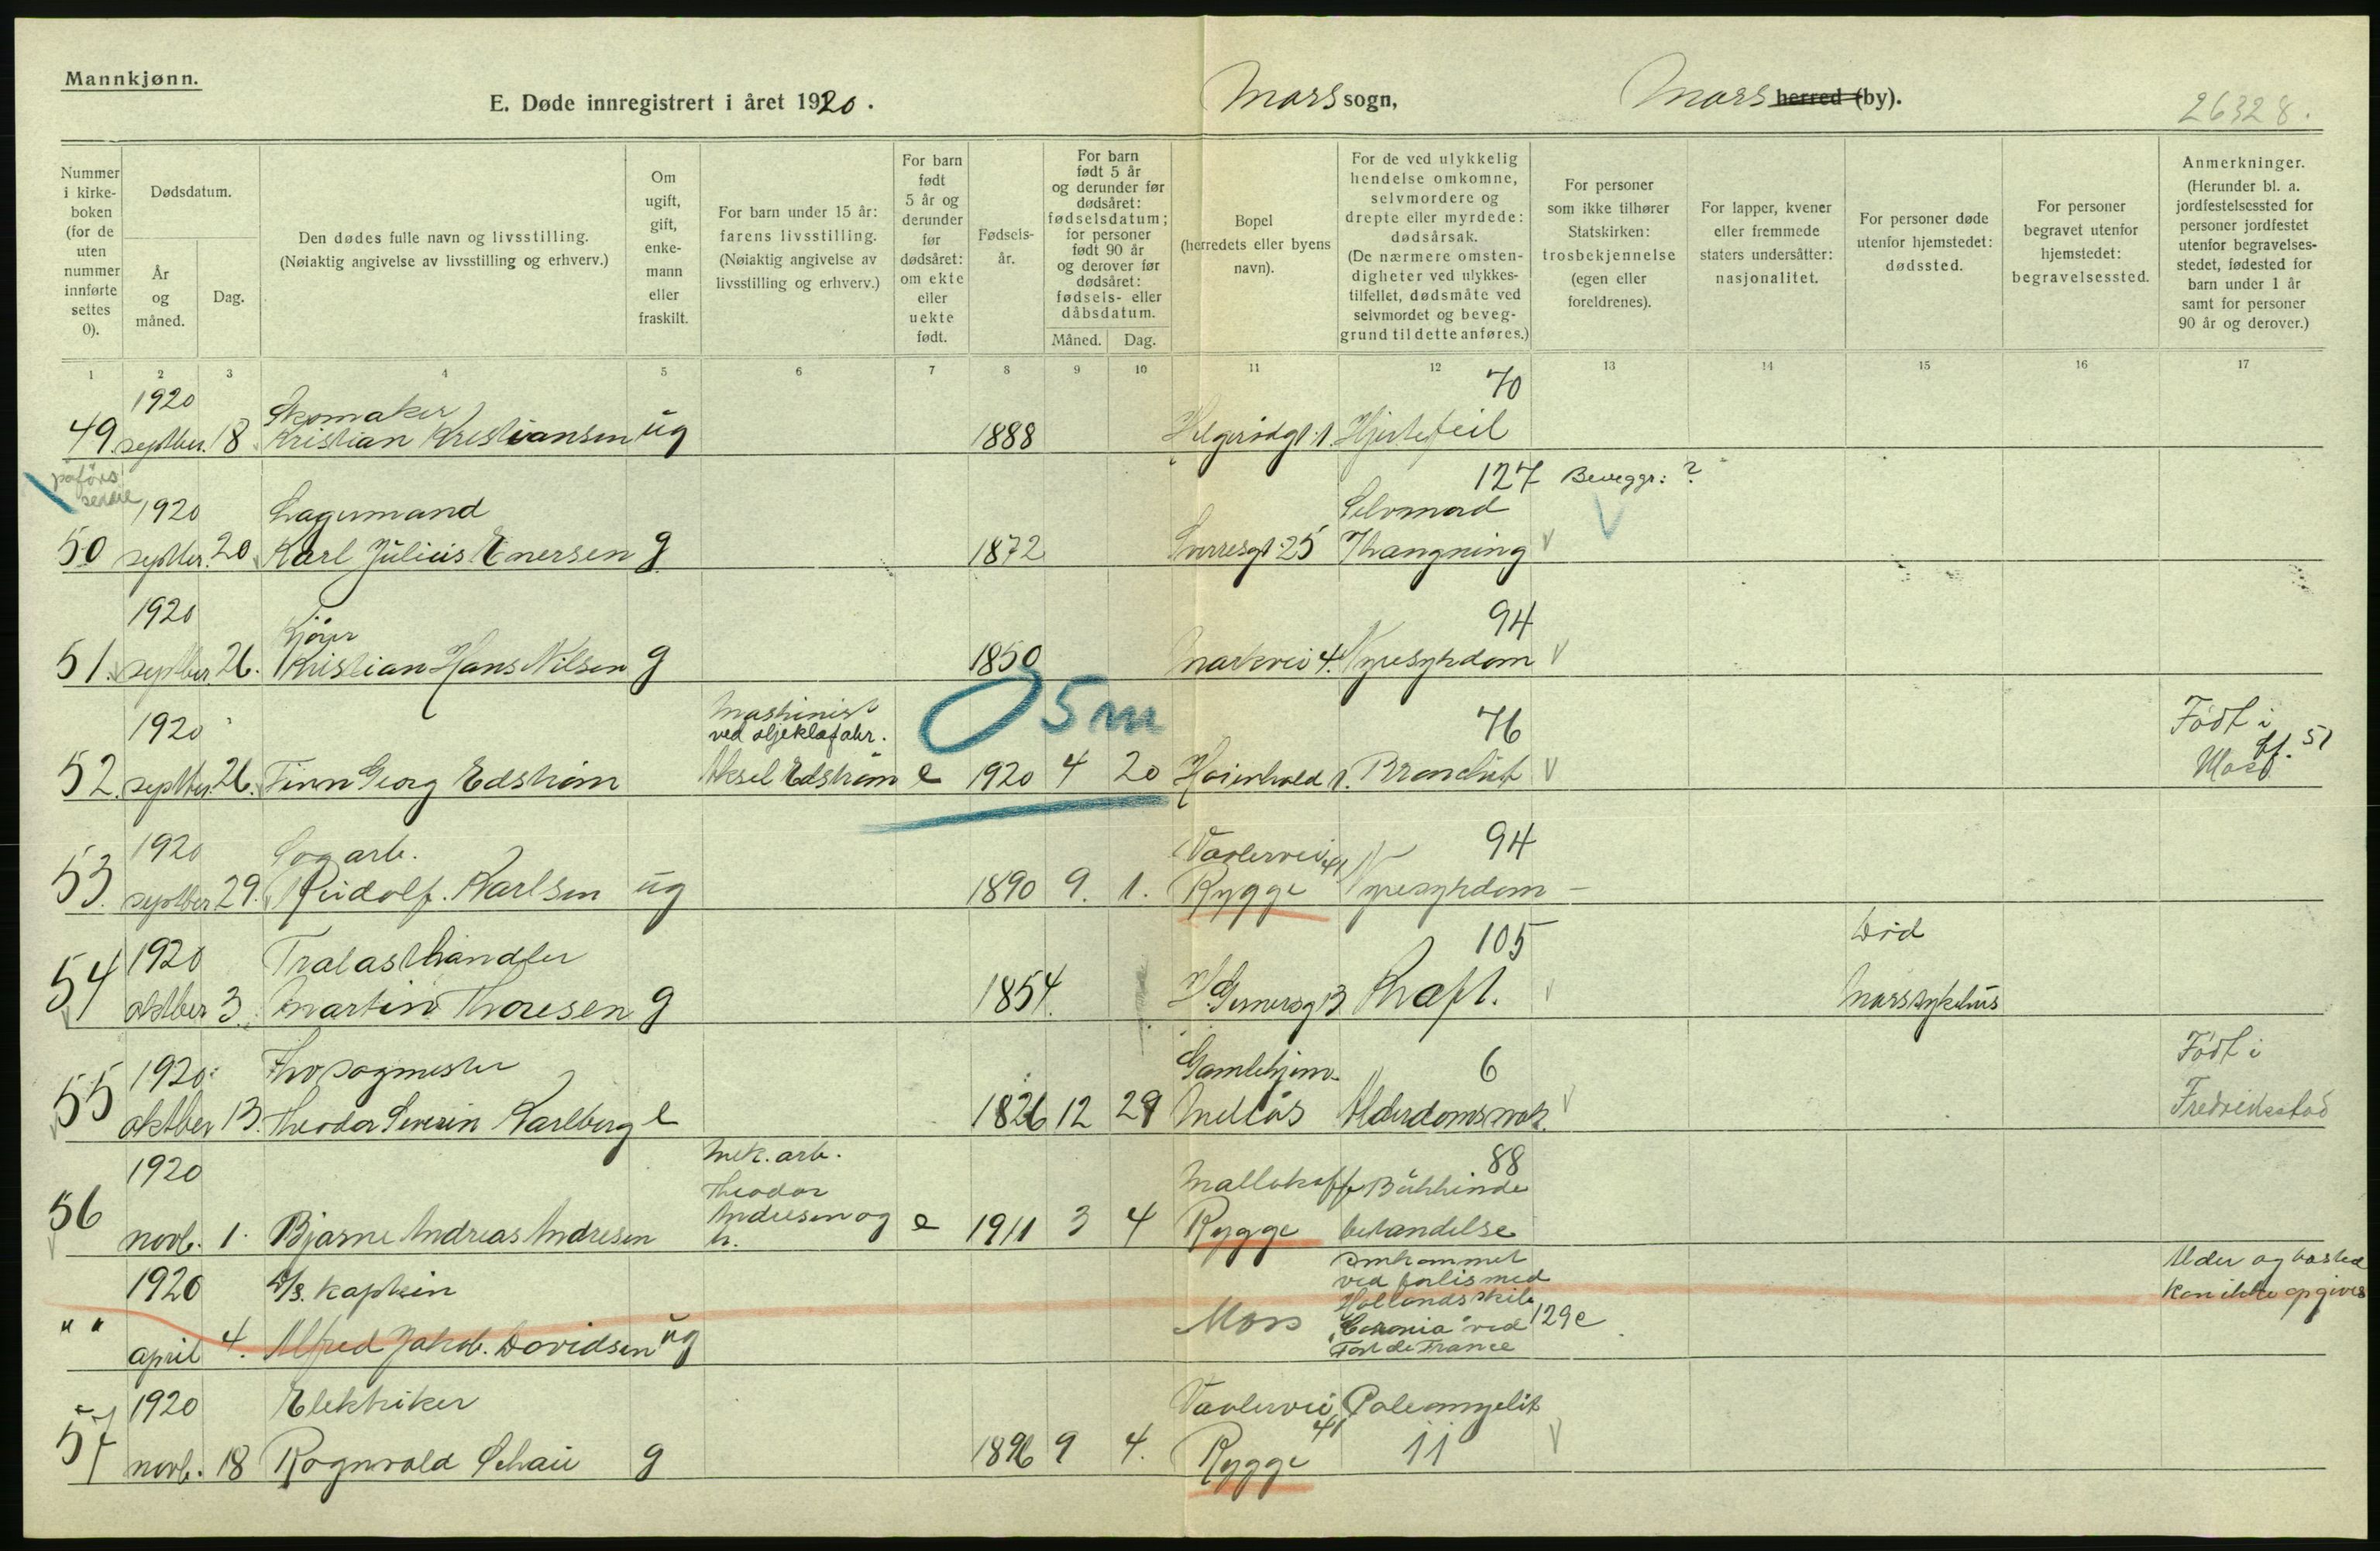 Mannkjønn.
E. Døde innregistrert i året 1920.
Moss sogn,
Moss herred (by).
26328.
Nummer i kirke-boken (for de uten nummer innførte settes 0).
Dødsdatum.
År og måned.
Dag.
Den dødes fulle navn og livsstilling.
(Nøiaktig angivelse av livsstilling og erhverv.)
Om ugift, gift, enke-mann eller fraskilt.
For barn under 15 år: farens livsstilling.
(Nøiaktig angivelse av livsstilling og erhverv.)
For barn født 5 år og derunder før dødsåret: om ekte eller uekte født.
Fødsels-år.
For barn født 5 år og derunder før dødsåret: fødselsdatum; for personer født 90 år og derover før dødsåret: fødsels- eller dåbsdatum.
Måned.
Dag.
Bopel
(herredets eller byens navn).
For de ved ulykkelig hendelse omkomne, selvmordere og drepte eller myrdede: dødsårsak.
(De nærmere omsten-digheter ved ulykkes-tilfellet, dødsmåte ved selvmordet og beveg-grund til dette anføres.)
For personer som ikke tilhører Statskirken: trosbekjennelse (egen eller foreldrenes).
For lapper, kvener eller fremmede staters undersåtter: nasjonalitet.
For personer døde utenfor hjemstedet: dødssted.
For personer begravet utenfor hjemstedet: begravelsessted.
Anmerkninger.
(Herunder bl. a. jordfestelsessted for personer jordfestet utenfor begravelses-stedet, fødested for barn under 1 år samt for personer 90 år og derover.)
1 2 3 4 5 6 7 8 9 10 11 12 13 14 15 16 17
1920 Skomaker 70
49. septber. 18 Kristian Kristiansen ug 1888 Hjertefeil
påførs senere
127 Beveggr: ?
1920 Lagermand Selvmord
50 septber. 20. Karl Julius Enersen g 1872 Sverresgt. 25 Ihængning
1920 Kjører 94
51. septber. 26. Kristian Hans Nilsen g 1850 Markvei 4. Nyresykdom
5 m
1920 Maskinist ved oljeklæfabr. 76 Født i
52. septber. 26. Finn Georg Edstrøm Aksel Edstrøm e 1920 4 20 Bronchit Moss
1920 Sagarb. Vaalervei 41 94
53. septber 29. Rudolf. Karlsen ug 1890 9. 1. Rygge Nyresykdom -
1920 Trælasthandler 105 Død
54 oktber 3. Martin Thoresen g 1854. Kræft. Moss sykehus
1920 Gamlehjem 6 Født i
55 oktber 13. Theodor Severin Karlberg e 1826 12 29 Melløs Alderdomssvak. Fredrikstad
1920 Mek. arb. Theodor 88
Mallakoff Bukhinde
56 novb. 1. Bjarne Andreas Andresen Andresen og h. e 1911 3 4 Rygge betændelse
1920 D/s. kaptein Omkommet ved forlis med Hollandsskib Alder og bosted kan ikke opgives
" " april 4. Alfred Jakob. Davidsen ug Moss ved 129e
Fort de France
1920 Elektriker Vaalervei 41 Poleomyelit
57 novb. 18 Rognvald Schau g 1896 9 4. Rygge 11